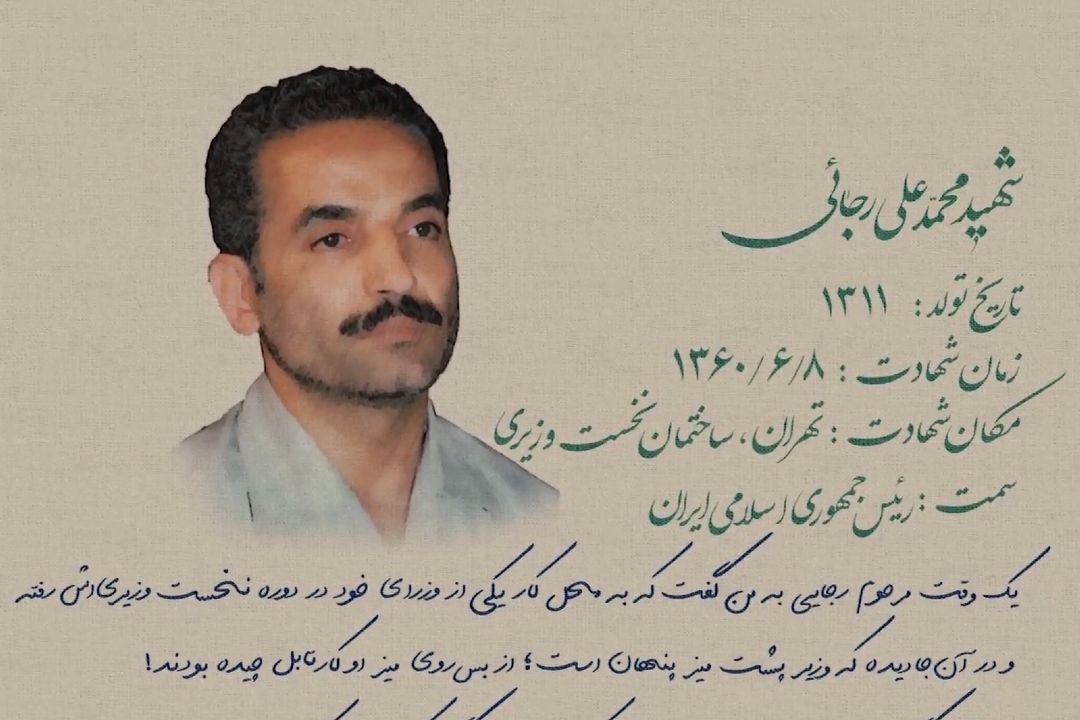 شهید محمّدعلی رجائی
تاریخ تولد : ۱۳۱۱
زمان شهادت : ۱۳۶۰/۶/۸
مکان شهادت : تهران، ساختمان نخست وزیری
سمت : رئیس جمهوری اسلامی ایران
یک وقت مرحوم رجایی به من گفت که به محل کار یکی از وزرای خود در دوره نخست وزیری‌اش رفته
و در آن جا دیده که وزیر پشت میز پنهان است؛ از بس روی میز او کارتابل چیده بودند!